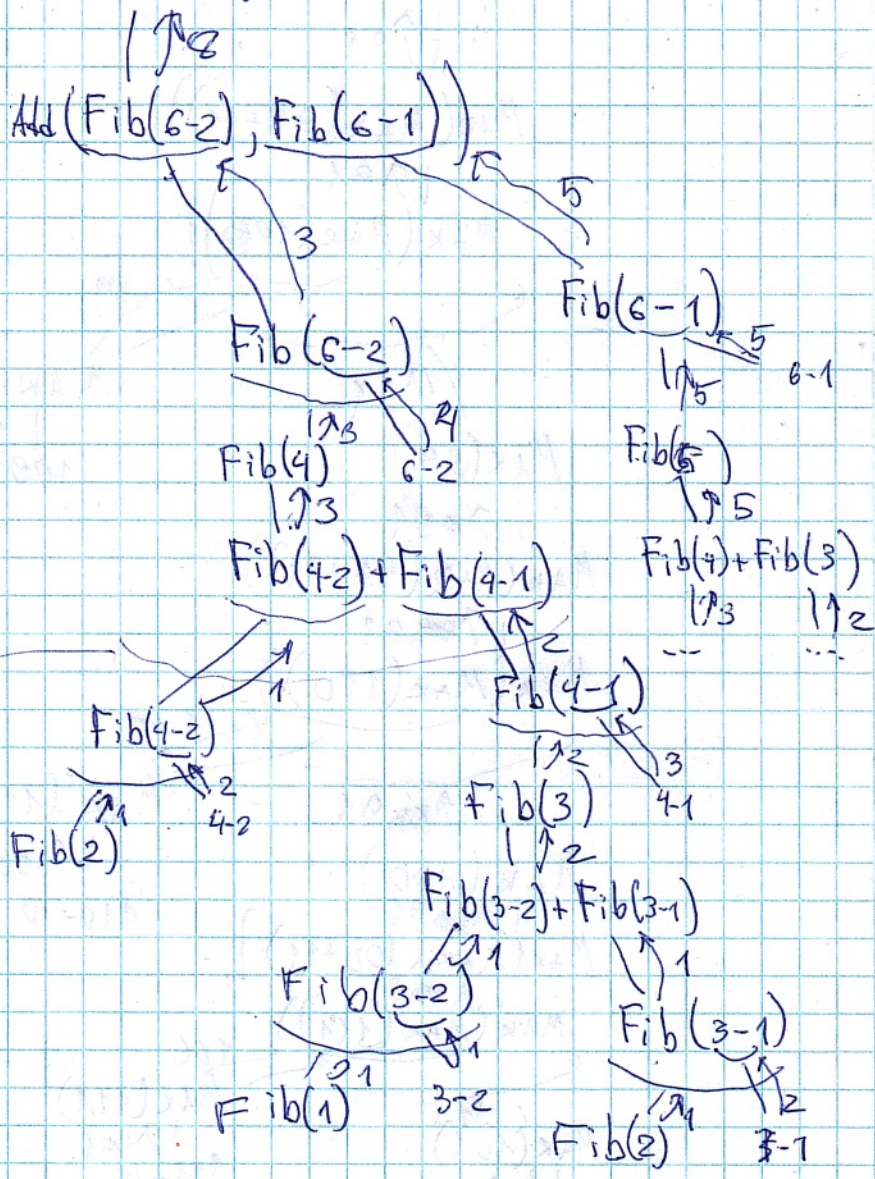 8
Add(Fib(6-2), Fib(6-1))
3
5
Fib(6-2)
Fib(6-1)
5
6-1
3
4
6-2
5
Fib(4)
Fib(5)
3
5
Fib(4-2)+Fib(4-1)
Fib(4)+Fib(3)
3
2
... ...
1
2
Fib(4-2)
Fib(4-1)
1
2
4-2
2
3
4-1
Fib(2)
Fib(3)
2
Fib(3-2)+Fib(3-1)
1
1
Fib(3-2)
Fib(3-1)
1
1
3-2
1
2
3-1
Fib(1)
Fib(2)